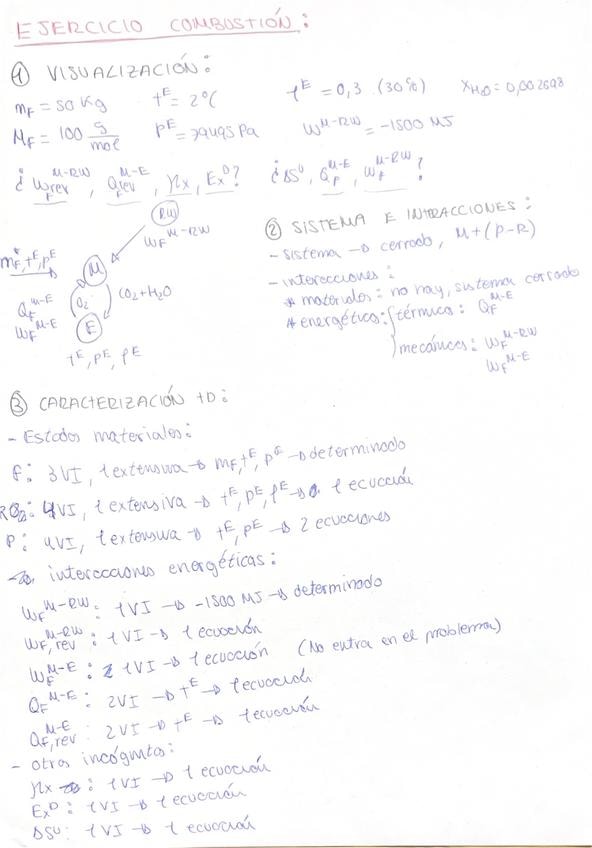 EJERCICIO COMBUSTIÓN:
① VISUALIZACIÓN:
mF = 50 Kg tE = 2ºC φE = 0,3 (30%) XH2O = 0,002698
MF = 100 g/mol PE = 79495 Pa WM-RW = -1500 MJ
¿ WFrevM-RW, QFrevM-E, ηx, ExD? ¿ΔSU, QFM-E, WFM-RW?
RW
WFM-RW
mF, tE, PE
M
QFM-E
WFM-E
O2
CO2+H2O
E
tE, PE, φE
② SISTEMA E INTRACCIONES:
- Sistema → cerrado, M+(P-R)
- interacciones:
* materiales: no hay, sistema cerrado
* energética: térmica: QFM-E
mecánicas: WFM-RW
WFM-E
③ CARACTERIZACIÓN tD:
- Estados materiales:
F: 3VI, 1 extensiva → mF, tE, PE → determinado
RO2: 4VI, 1 extensiva → tE, PE, φE → 1 ecucción
P: 4VI, 1 extensiva → tE, PE → 2 ecucciones
→ interecciones energéticas:
WFM-RW: 1VI → -1500 MJ → determinado
WF,revM-RW: 1VI → 1 ecucción
WFM-E: 1VI → 1 ecucción (No entra en el problema)
QFM-E: 2VI → tE → 1 ecucción
QF,revM-E: 2VI → tE → 1 ecucción
- otras incógnitas:
ηx: 1VI → 1 ecucción
ExD: 1VI → 1 ecucción
ΔSU: 1VI → 1 ecucción